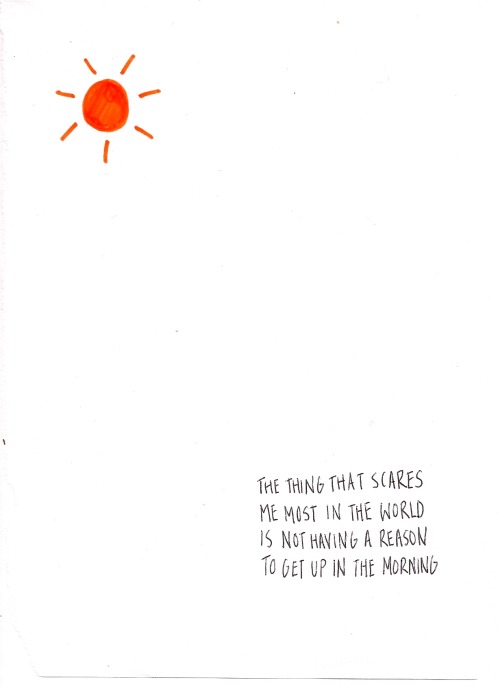 THE THING THAT SCARES
ME MOST IN THE WORLD
IS NOT HAVING A REASON
TO GET UP IN THE MORNING